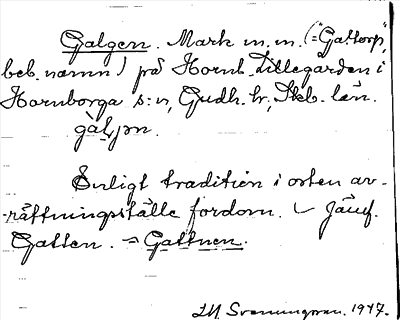 Galgen. Mark m.m. (="Galtorp",
beb. namn) på Hornb. Lillegården i
Hornborga s:n, Gudh. hr, Skb. län.
gàl̥jɔn.
Enligt tradition i orten av-
-rättningsställe fordom. Jämf.
Gatten. = Gattnen.
Sveningson. 1947.